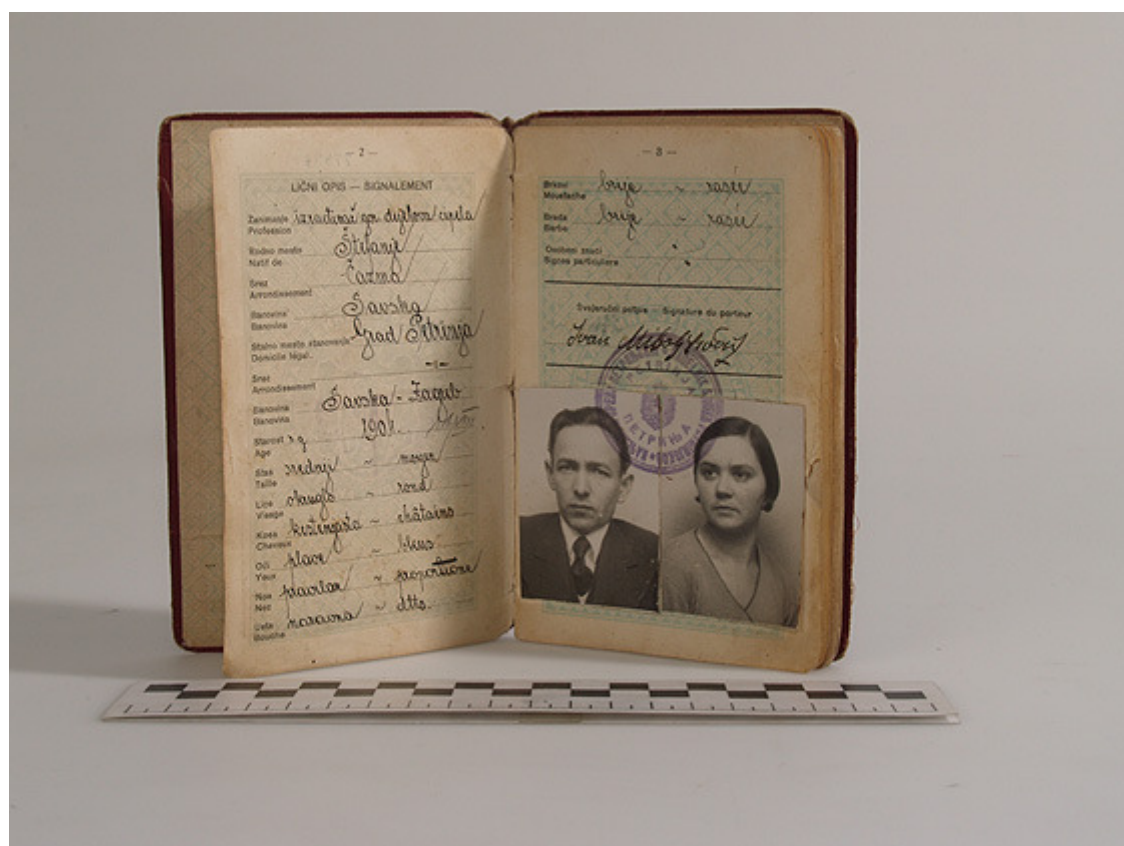 — 2 —
LIČNI OPIS — SIGNALEMENT
Zanimanje
Profession
izrađivač gor. dijelova cipela
Rodno mesto
Natif de
Štefanje
Srez
Arrondissement
Čazma
Banovina
Banovina
Savska
Stalno mesto stanovanja
Domicile légal
Grad Petrinja
Srez
Arrondissement
Banovina
Banovina
Savska - Zagreb
Starost
Age
1901.
Stas
Taille
srednji ~ moyen
Lice
Visage
~ rond
Kosa
Cheveux
kestenjasta ~ châtains
Oči
Yeux
plave ~ bleus
Nos
Nez
pravilan ~
Usta
Bouche
naravna ~ dtto.
— 3 —
Brkovi
Moustache
brije ~ rasée
Brada
Barbe
brije ~ rasée
Osobeni znaci
Signes particuliers
Svojeručni potpis Signature du porteur
Ivan
ПЕТРИЊА